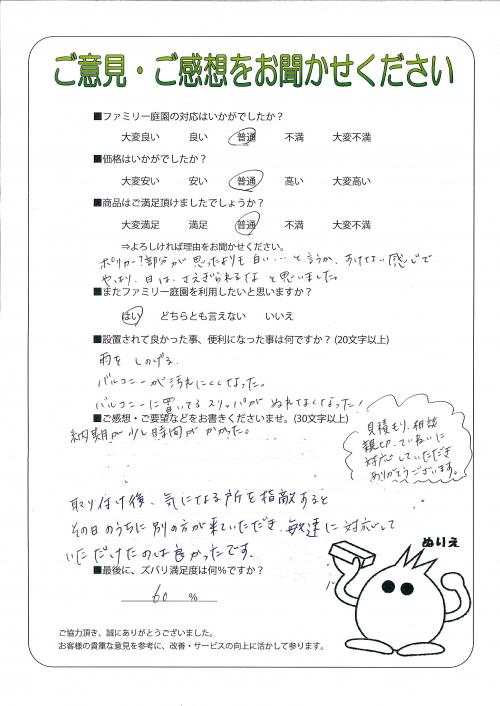 ご意見・ご感想をお聞かせください
■ファミリー庭園の対応はいかがでしたか？
大変良い 良い 普通 不満 大変不満
■価格はいかがでしたか？
大変安い 安い 普通 高い 大変高い
■商品はご満足頂けましたでしょうか？
大変満足 満足 普通 不満 大変不満
⇒よろしければ理由をお聞かせください。
ポリカー?部分が思ったよりも白い…と言うか、すけない感じで
やっぱり、日は、さえぎられるなと思いました。
■またファミリー庭園を利用したいと思いますか？
はい どちらとも言えない いいえ
■設置されて良かった事、便利になった事は何ですか？(20文字以上)
雨をしのげる。
バルコニーが汚れにくくなった。
バルコニーに置いてるスリッパがぬれなくなった！
■ご感想・ご要望などをお書きくださいませ。(30文字以上)
納期が少し時間がかかった。
見積もり、相談
親切、ていねいに
対応していただき
ありがとうございます。
取り付け後、気になる所を指敵すると
その日のうちに別の方が来ていただき、敏速に対応して
いただけたのは良かったです。
■最後に、ズバリ満足度は何％ですか？
60 %
ぬりえ
ご協力頂き、誠にありがとうございました。
お客様の貴重な意見を参考に、改善・サービスの向上に活かして参ります。